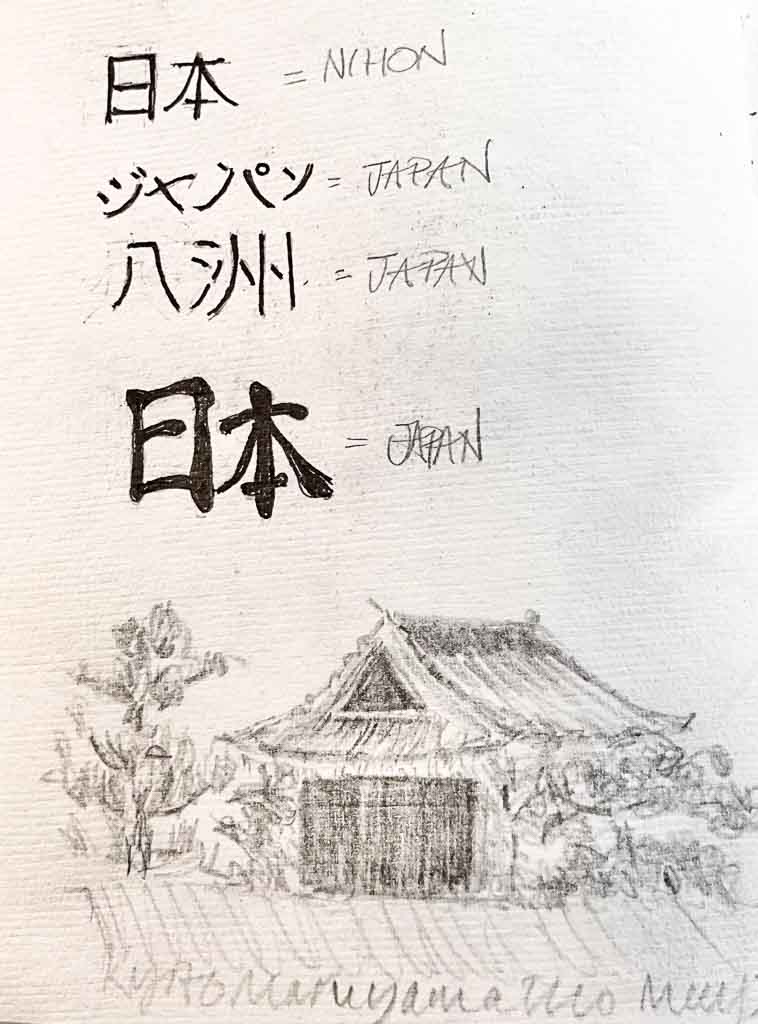 日本 = NIHON
ジャパン = JAPAN
八洲 = JAPAN
日本 = JAPAN
Kyoto Maruyama